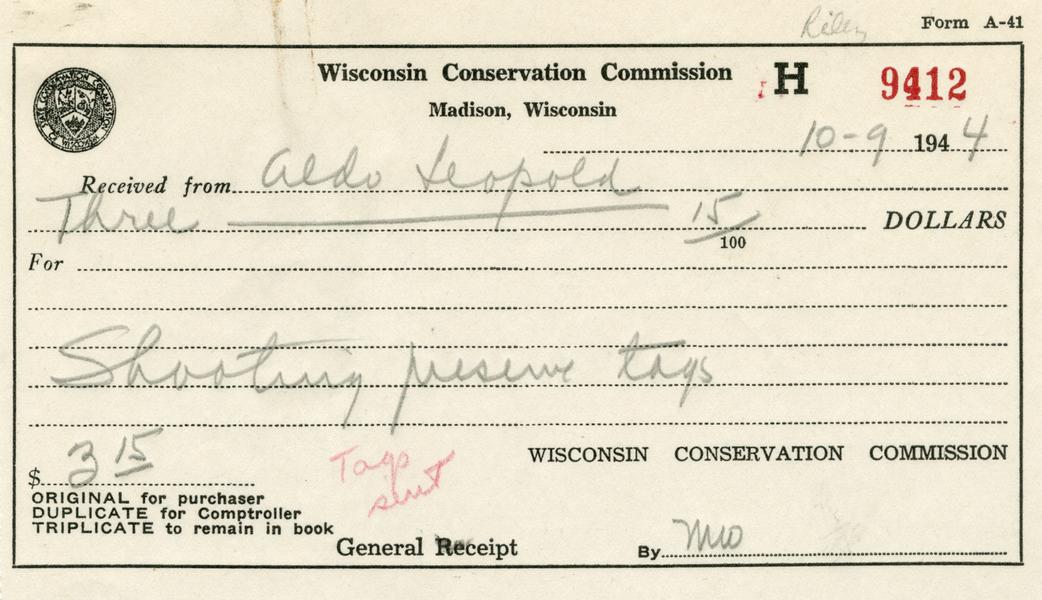 Riley
Form A-41
Wisconsin Conservation Commission H 9412
Madison, Wisconsin
10-9 1944
Received from Aldo Leopold
Three 15/100 DOLLARS
For
Shooting preserve tags
$ 3 15
Tags
sent
WISCONSIN CONSERVATION COMMISSION
ORIGINAL for purchaser
DUPLICATE for Comptroller
TRIPLICATE to remain in book
General Receipt
By